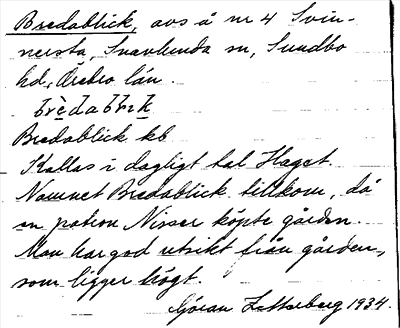 Bredablick, avs å nr 4 Svin-
nersta, Snavlunda sn, Sundbo
hd, Örebro län.
brèdabhk
Bredablick kb
Kallas i dagligt tal Haget.
Namnet Bredablick tillkom, då
en patron Nisser köpte gården.
Man har god utsikt från gården,
som ligger högt.
Göran Zetterberg 1934.